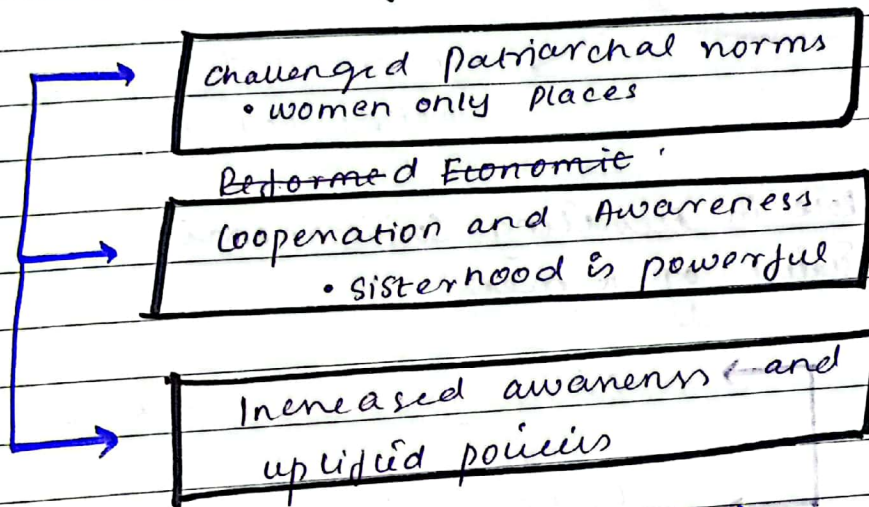 Challenged Patriarchal norms
• women only places
Reformed Economic
Cooperation and Awareness
• Sisterhood is powerful
Increased awareness and
uplifted policies